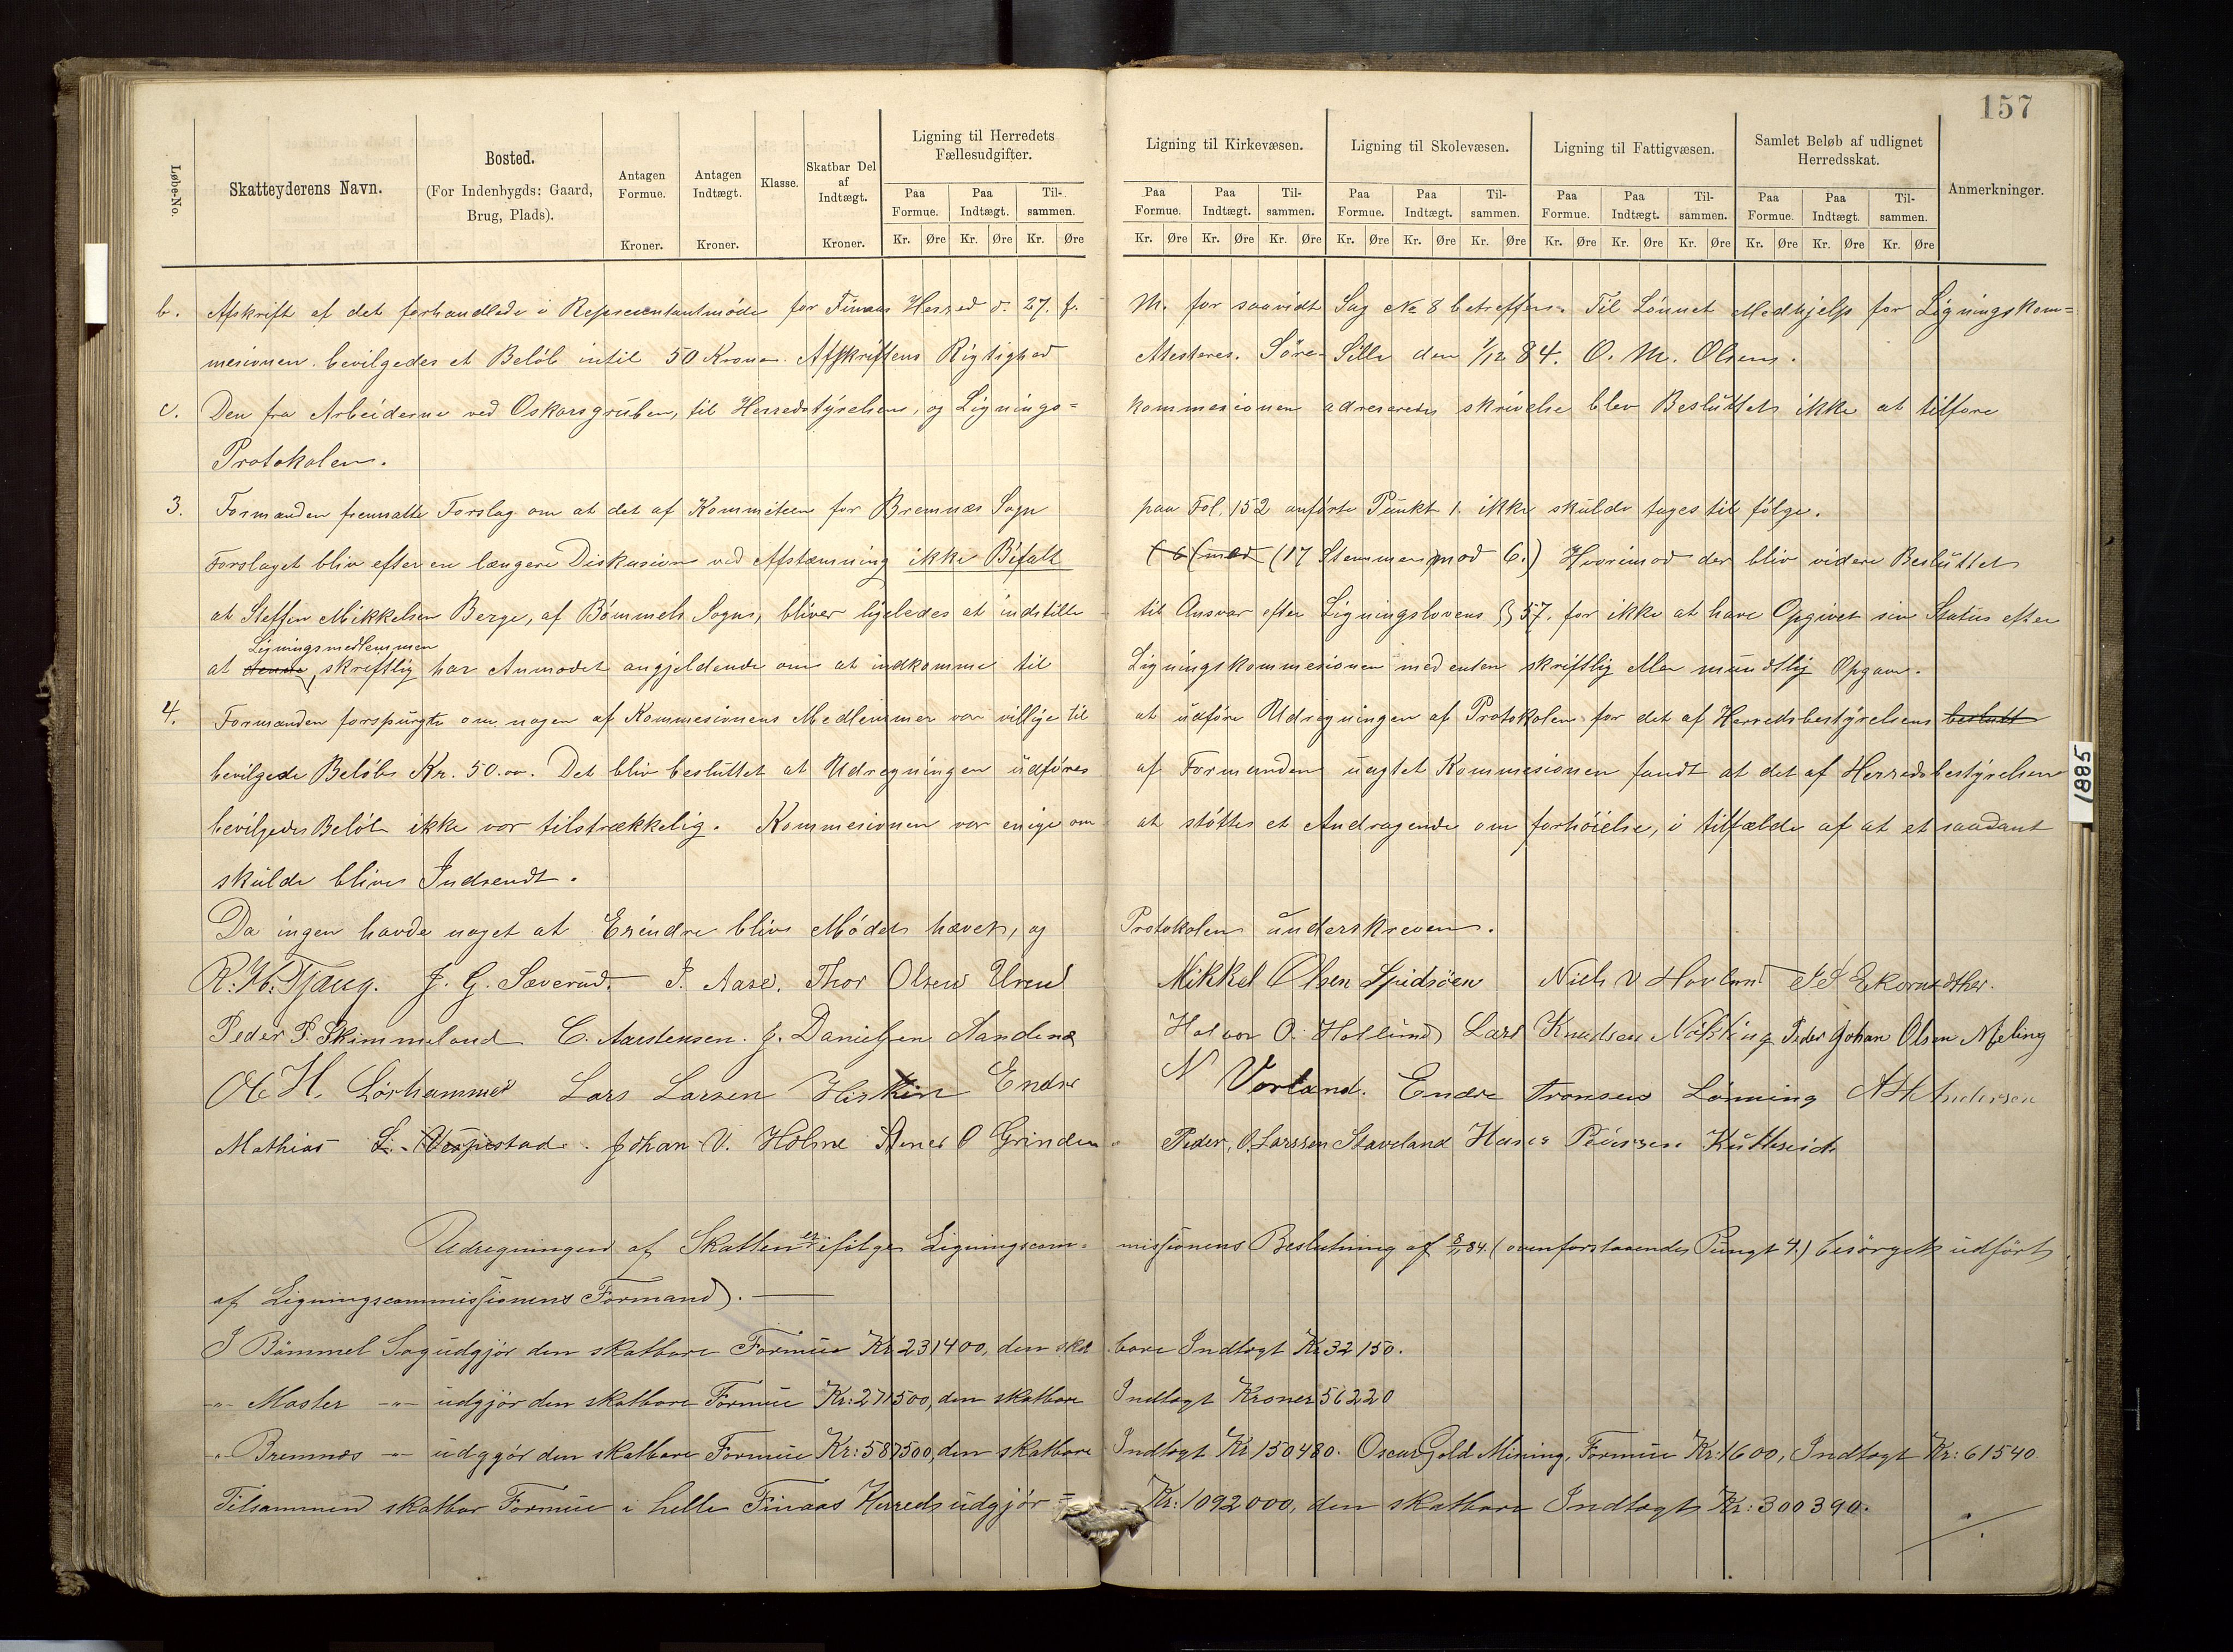 157
Løbe-No.
Skatteyderens Navn.
Bosted.
(For Indenbygds: Gaard, Brug, Plads).
Antagen Formue.
Kroner.
Antagen Indtægt.
Kroner.
Klasse.
Skatbar Del af Indtægt.
Kroner.
Ligning til Herredets Fællesudgifter.
Ligning til Kirkevæsen.
Ligning til Skolevæsen.
Ligning til Fattigvæsen.
Samlet Beløb af udlignet Herredsskat.
Anmerkninger.
Paa Formue. Paa Indtægt. Tilsammen. Paa Formue. Paa Indtægt. Tilsammen. Paa Formue. Paa Indtægt. Tilsammen. Paa Formue. Paa Indtægt. Tilsammen. Paa Formue. Paa Indtægt. Tilsammen.
Kr. Øre Kr. Øre Kr. Øre Kr. Øre Kr. Øre Kr. Øre Kr. Øre Kr. Øre Kr. Øre Kr. Øre Kr. Øre Kr. Øre Kr. Øre Kr. Øre Kr. Øre
b. Afskrift af det forhandlede i Representantmøde for Finaas Herred d. 27. f. M. for saavidt Sag No 8 betreffer. Til Lønnet Medhjelp for Ligningskom=
mesionen bevilgedes et Beløb intil 50 Kroner. Afskriftens Rigtighed Atesteres. Søre Sille den 1/12 84. O. M. Olsen.
c. Den fra Arbeiderne ved Oskarsgruben, til Herredstyrelsen, og Lignings= kommesionen adreserede skrivelse blev Besluttet ikke at tilføre
Protokolen.
3. Formanden fremsatte Forslag om at det af Kommiteen for Bremnæs Sogn paa Fol. 152 anførte Punkt 1. ikke skulde tages til følge.
Forslaget blev efter en længere Diskusion ved Afstemning ikke Bifalt (17 Stemmer mod 6.) Hvorimod der blev videre Besluttet
at Steffen Mikkelsen Berge, af Bømmels Sogn, bliver ligeledes at indstille til Ansvar efter Ligningslovens § 57. for ikke at have Opgivet sin Status efter
Ligningsmedlemmen
at denne, skriftlig har Anmodet angjeldende om at indkomme til Ligningskommesionen med enten skriftlig eller mundtlig Opgave.
4. Formanden forspurgte om nogen af Kommesionens Medlemmer var villige til at udføre Udregningen af Protokolen for det af Herredsbestyrelsen beslutt
bevilgede Beløb Kr. 50.00. Det blev besluttet at Udregningen udføres af Formanden uagtet Kommesionen fandt at det af Herredsbestyrelsen
bevilgede Beløb ikke var tilstrækkelig. Kommesionen var enige om at støttes et Andragende om forhøielse, i tilfælde af at et saadant
skulde blive Indsendt.
Da ingen havde noget at Erindre blev Mødet hævet, og Protokolen underskreven.
R. H. Tjong. J. G. Sæverud. I. Aase. Thor Olsen Uren Mikkel Olsen Spidsøen Niels V Hovland
Peder P. Skimmeland C. Aarstensen. J. Danielsen Sandena Halvor O. Hollund Lars Knudsen Peder Johan Olsen Meling
Ole H. Lars Larsen Endre N Vorland. Endre Tronsen Lønning A H Andersen
Mathias L. Vespestad. Johan V. Holme O Grinden Peder O. Larssen Staveland Hans Kuttheid
Udregningen af Skatten er ifølge Ligningscommissionens Beslutning af 8/1 84. (ovenforstaaende Pungt 4.) besørget udført
af Ligningscommissionens Formand. —
I Bømmel Sogn udgjør den skatbare Formue Kr 231400, den skatbare Indtægt Kr 32150.
-"- Moster -"- udgjør den skatbare Formue Kr: 271500, den skatbare Indtægt Kroner 56220
-"- Bremnæs -"- udgjør den skatbare Formue Kr: 587500, den skatbare Indtægt Kr 150480. Oscar Gold Mining, Formue Kr: 1600, Indtægt Kr: 61540.
Tilsammen skatbar Formue i helle Finaas Herred udgjør = Kr: 1092000, den skatbare Indtægt Kr: 300390.
1885